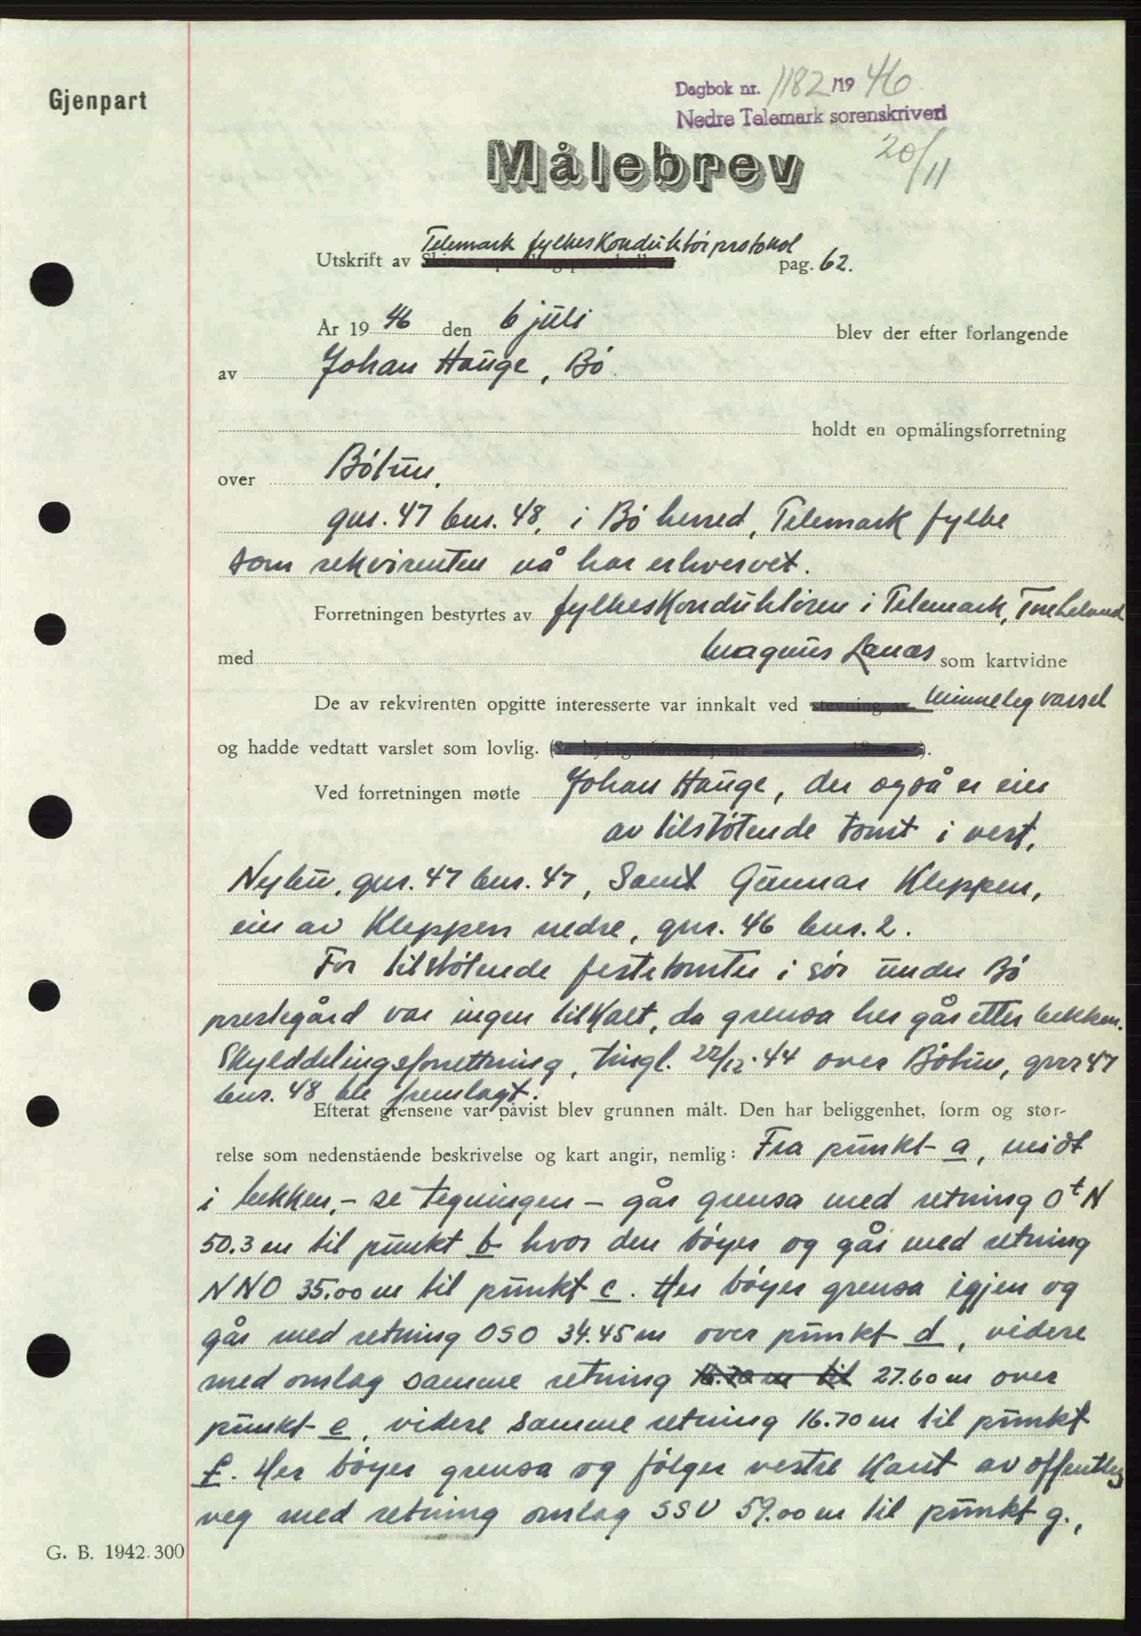 Gjenpart
Dagbok nr. 1182/19 46
Nedre Telemark sorenskriveri
20/11
Målebrev
Telemark fylkeskonduktørprotokol
Utskrift av pag. 62.
År 19 46 den 6 juli blev der efter forlangende
av Johan Hauge, Bø
holdt en opmålingsforretning
over Bøtun,
gnr. 47 bnr. 48, i Bø herred, Telemark fylke
som rekvirenten nå har erhvervet.
Forretningen bestyrtes av fylkeskonduktøren i Telemark,
med Magnus Lanæs som kartvidne
De av rekvirenten opgitte interesserte var innkalt ved stevning av minneleg varsel
og hadde vedtatt varslet som lovlig.
Ved forretningen møtte Johan Hauge, der også er eier
av tilstøtende tomt i vest,
Nybu, gnr. 47 bnr. 47, samt Gunnar Kleppen,
eier av Kleppen nedre, gnr. 46 bnr. 2.
For tilstøtende festetomter i sør under Bø
prestegård var ingen tilkalt, da grensa her går etter bekken.
Skylddelingsforrettning, tingl. 22/12-44 over Bøtun, gnr 47
bnr. 48 ble fremlagt.
Efterat grensene var påvist blev grunnen målt. Den har beliggenhet, form og stør-
relse som nedenstående beskrivelse og kart angir, nemlig: Fra punkt a, midt
i bekken, - se tegningen - går grensa med retning OtN
50.3 m til punkt b hvor den bøyer og går med retning
NNO 35.00 m til punkt c. Her bøyer grensa igjen og
går med retning OSO 34.45 m over punkt d, videre
med omlag samme retning 16.70 m til 27.60 m over
punkt e, videre samme retning 16.70 m til punkt
f. Her bøyer grensa og følger vestre kant av offentleg
veg med retning omlag SSV 59.00 m til punkt g.,
G. B. 1942 300